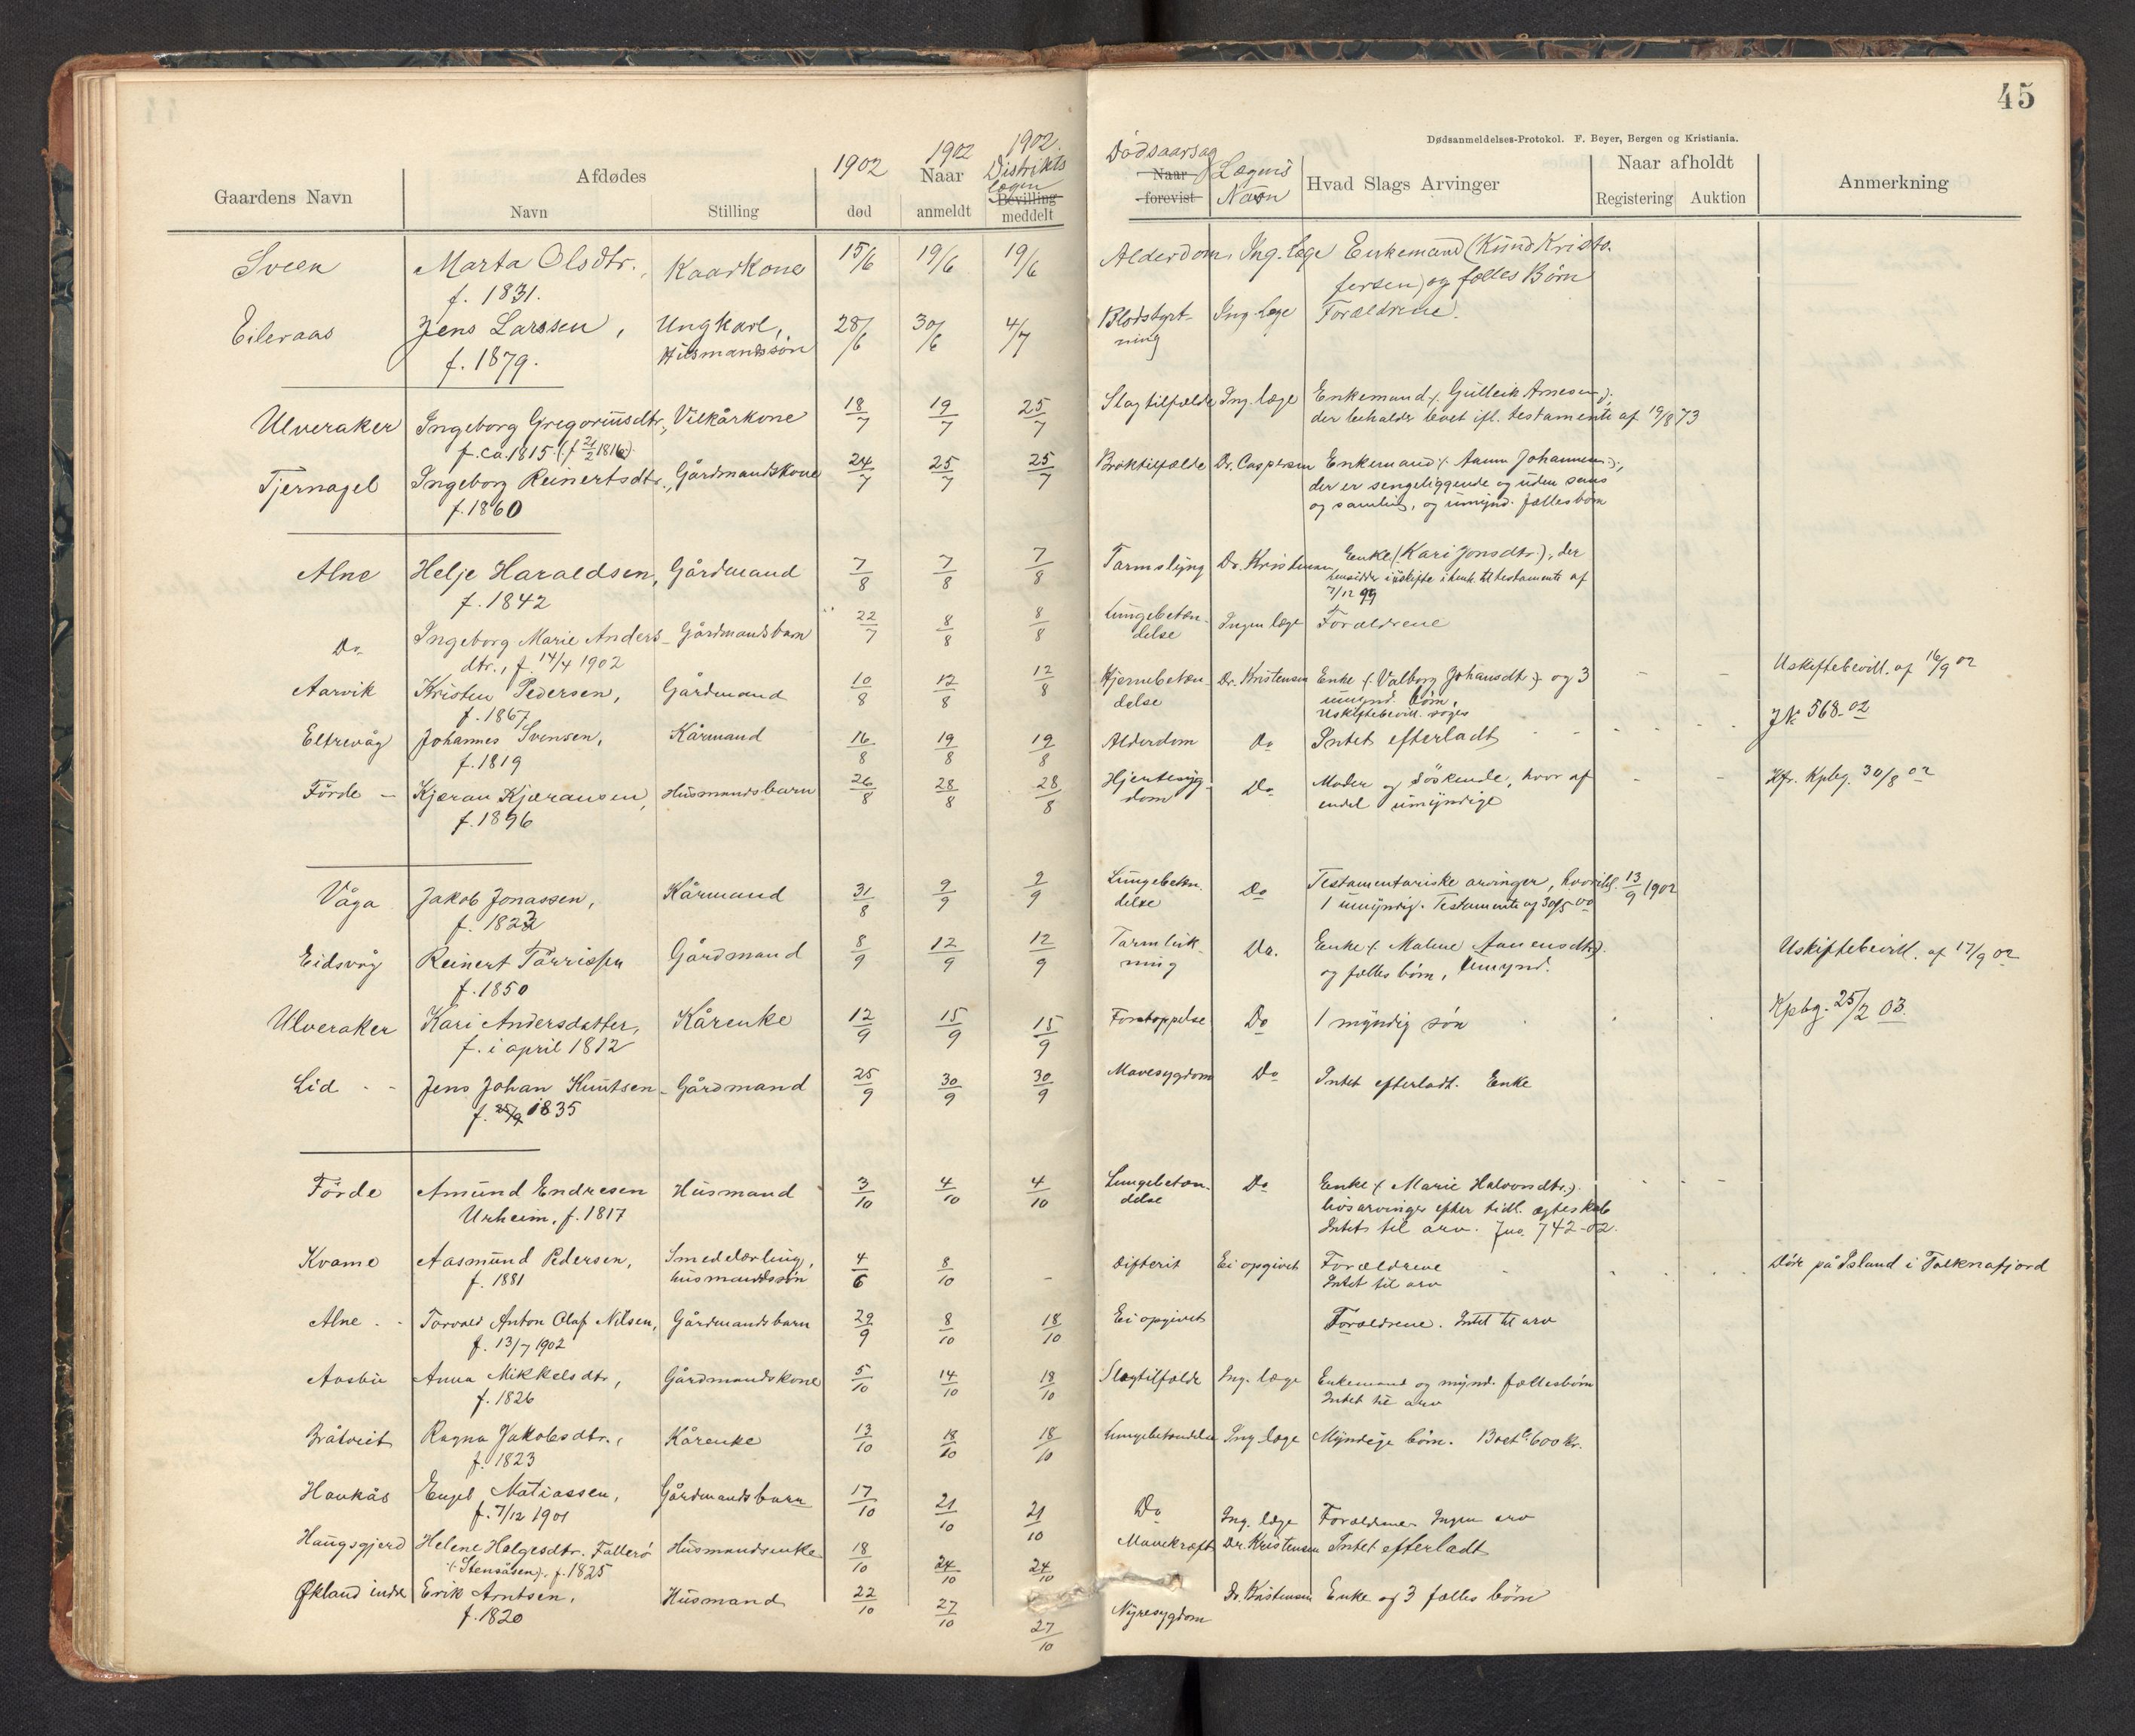 45
Dødsanmeldelses-Protokol. F. Beyer, Bergen og Kristiania.
Gaardens Navn
Afdødes
Navn
Stilling
1902
død
1902
Naar
anmeldt
1902.
Distrikts
lægen
Bevilling
meddelt
Dødsaarsag
Naar
forevist
Lægens
Navn
Hvad Slags Arvinger
Naar afholdt
Registering
Auktion
Anmerkning
Sveen Marta Olsdtr., Kaarkone 15/6 19/6 19/6 Alderdom Ing. læge Enkemand (Knud Kristo
f. 1831. fersen) og fælles Børn
Eileraas Jens Larssen, Ungkarl, 28/6 30/6 4/7 Blodstyrt- Ing. læge Forældrene.
f. 1879. Husmandssøn ning
Ulveraker Ingeborg Gregoriusdtr., Vilkårkone 18/7 19/7 25/7 Slagtilfælde Ing. læge Enkemand (: Gulleik Arnesen :),
f. ca. 1815 (f 21/2 1816) der beholder boet ifl. testamente af 19/8 73
Tjernagel Ingeborg Reinertsdtr., Gårdmandskone 24/7 25/7 25/7 Broktilfælde Dr. Caspersen Enkemand (: Aamu Johannesen :),
f. 1860 der er sengeliggende og uden sans
og samling, og umynd. fællesbørn
Alne Helje Haraldsen, Gårdmand 7/8 7/8 7/8 Tarmslyng Dr. Kristensen Enke (Kari Jonsdtr.), der
f. 1842 hensidder i uskifte i henh. til testamente af
7/12 99
Do Ingeborg Marie Anders- Gårdmandsbarn 22/7 8/8 8/8 Lungebetæn- Ingen læge Forældrene
dtr., f. 14/4 1902 delse
Aarvik Kristen Pedersen, Gårdmand 10/8 12/8 12/8 Hjernebetæn- Dr. Kristensen Enke (: Valborg Johansdtr :) og 3 - - Uskiftebevill. af 16/9 02
f. 1867 delse umynd. børn,
Uskiftebevill. søges
Eltrevåg Johannes Svensen, Kårmand 16/8 19/8 19/8 Alderdom Do Intet efterladt - - JN 568-02
f. 1819
Förde - Kjæran Kjæransen, Husmandsbarn 26/8 28/8 28/8 Hjertesyg- Do Moder og Söskende, hvor af - - Kfr. Kpbg. 30/8 02
f. 1896 dom endel umyndige
Våga Jakob Jonassen, Kårmand 31/8 9/9 9/9 Lungebetæn- Do Testamentariske arvinger, hvoribl. 13/9 1902
f. 1823 delse 1 umyndig. Testamente af 30/5 00
Eidsvåg Reinert Törrissen Gårdmand 8/9 12/9 12/9 Tarmluk- Do. Enke (: Malene Aanensdtr :) Uskiftebevill. af 17/9 02
f. 1850 ning og fælles børn, umynd.
Ulveraker Kari Andersdatter, Kårenke 12/9 15/9 15/9 Forstoppelse Do 1 myndig søn Kpbg. 25/2 03.
f. i april 1812
Lid - - Jens Johan Knutsen - Gårdmand 25/9 30/9 30/9 Mavesygdom Do Intet efterladt. Enke
f. 25/9 1835
Förde Amund Endresen Husmand 3/10 4/10 4/10 Lungebetæn- Do Enke (: Marie Halvorsdtr. :) - - -
Urheim, f. 1817 delse livsarvinger efter tidl. ægteskab
Intet til arv. Jno. 742-02.
Kvame Aasmund Pedersen, Smedelærling, 4/6 8/10 - Difterit Ei opgivet Forældrene Döde på Island i Talknafjord
f. 1881 husmandssøn Intet til arv
Alne - - Torvald Anton Olaf Nilsen, Gårdmandsbarn 29/9 8/10 18/10 Ei opgivet Forældrene. Intet til arv
f. 13/7 1902
Aasbu Anna Mikkelsdtr., Gårdmandskone 5/10 14/10 18/10 Slagtilfælde Ing. læge Enkemand og mynd. fællesbörn
f. 1826 Intet til arv
Bråtveit Ragna Jakobsdtr., Kårenke 13/10 18/10 18/10 Lungebetændelse Ing. læge Myndige børn. Boet c. 600 Kr.
f. 1823
Haukås Engel Matiassen, Gårdmandsbarn 17/10 21/10 21/10 Do Ing. læge Forældrene. Ingen arv
f. 7/12 1901
Haugsgjerd Helene Helgesdtr. Falkerö Husmandsenke 18/10 24/10 24/10 Mavekræft Dr. Kristensen Intet efterladt
(: Stensåsen :). f. 1825
Økland indre Erik Arntsen, Husmand 22/10 27/10 27/10 Nyresygdom Dr. Kristensen Enke og 3 fælles børn
f. 1820